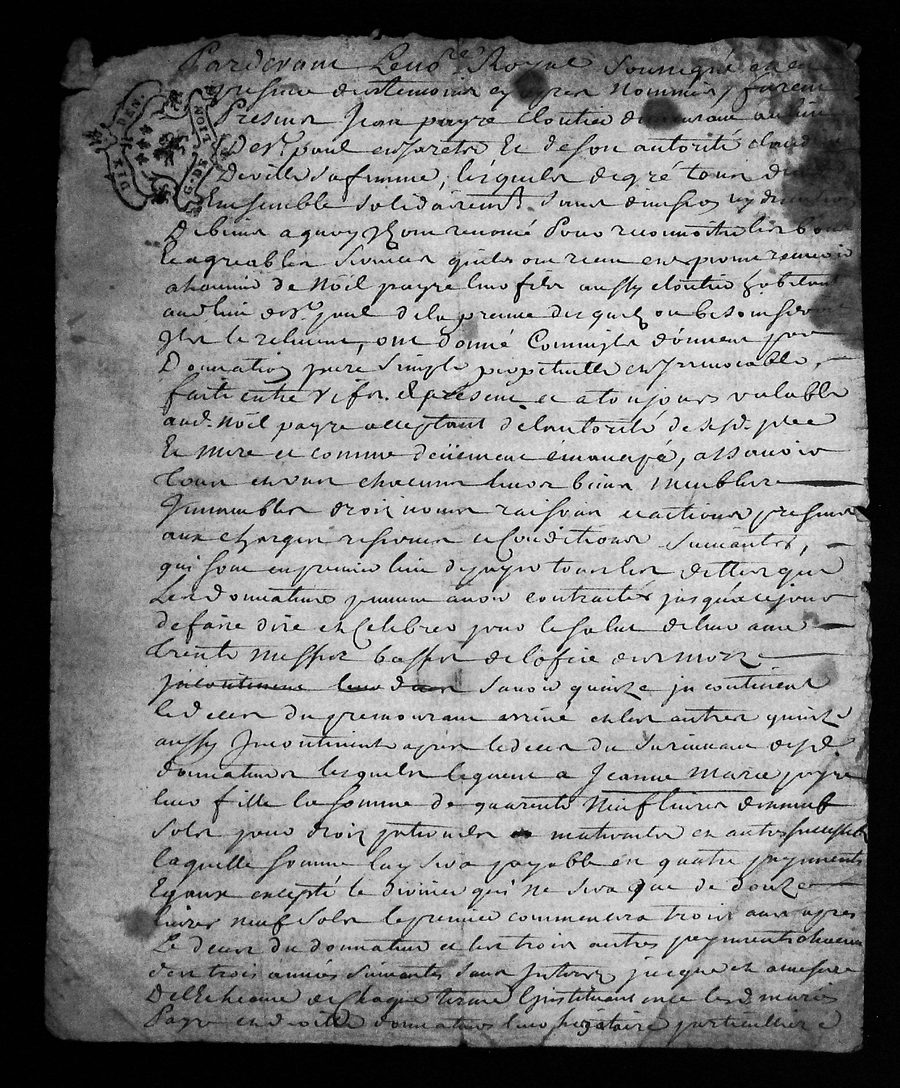 Pardevant Le no.re Royal soussigné et en
presence des temoins cy apres Nommés, furent
Presens Jean payre cloutier demeurant au lieu
De s.t paul en Jarets Et de son autorité
Deville sa femme, lesquels de gré tous Deux
Ensemble solidairement sans division ny
De biens a quoy Ils ont renoncé Pour reconnoitre les bons
Et agreables services quils ont receu et esperent recevoir
a lavenir de Nöel payre leur fils aussy cloutier habitant
aud. lieu de s.t paul de la preuve desquels ou besoin seroit
Ils le relevent, ont donné Comme ils donnent par
Donnation pure simple perpetuelle et Irrevocable,
faite entre vifs a present et a toujours valable
aud. Nöel payre acceptant de lautorité de sesd. pere
Et mere et comme deüement émancipé, assavoir
tous et uns chacuns leurs biens meubles
Immeubles droits noms raisons et actions presens
aux charges reserves et Conditions suivantes,
qui sont en premier lieu de payer toutes les dettes que
Les donnateurs peuvent avoir contractés jusqua ce jour
de faire dire et Celebrer pour le salut de leur ame
trente messes basses de lofice des morts
incontinent leur deces savoir quinze incontinent
le deces du premourant arrivé et les autres quinze
aussy Incontinent apres le deces du survivant desd.
donnateurs lesquels leguent a Jeanne Marie payre
leur fille la somme de quarente Neuf livres dixneuf
sols pour droits paternels maternels et autres
laquelle somme luy sera payable en quatre payements
Egaux excepté le dernier qui ne sera que de douze
livres neuf sols le premier commencera trois ans apres
Le deces du donnateur et les trois autres payements
des trois années suivantes sans Interets jusque et a mesure
De lEcheance de chaque terme Instituant
Payre et deville donnateurs leur particulliere